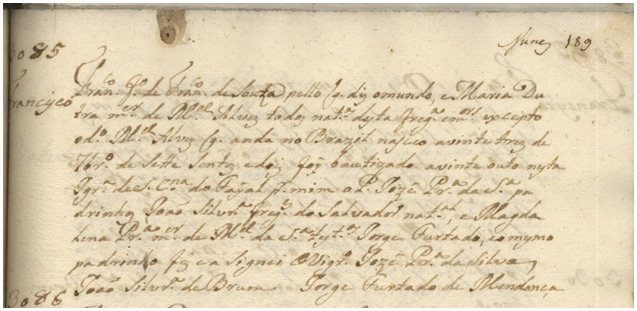 Nunes 189
3085
Francisco
Fran.co f.o de Fran.co de Souza pello q. diz omundo, e Maria Du
tra m.er de M.el Alvez todos nat.es desta freg.a em.res excepto
od.o M.el Alvez q. anda no Brazil nasceo avinte tres de
7br.o de sette sentos edos foy bautizado avinte outo nesta
Igr.a de S. Cna. do Fayal p. mim o d. P. Jozé Pr.a da S.a pa
drinhos João Silvr.a freg.s do Salvador nat.al, e Magda
lena Pr.a m.er de M.el da S.a test.as Jorge Furtado, eo mesmo
padrinho fiz e a Signei O Vigr.o Jozé Pr.a da Silva
João Silvr.a de Brum Jorge Furtado de Mendonça
3086